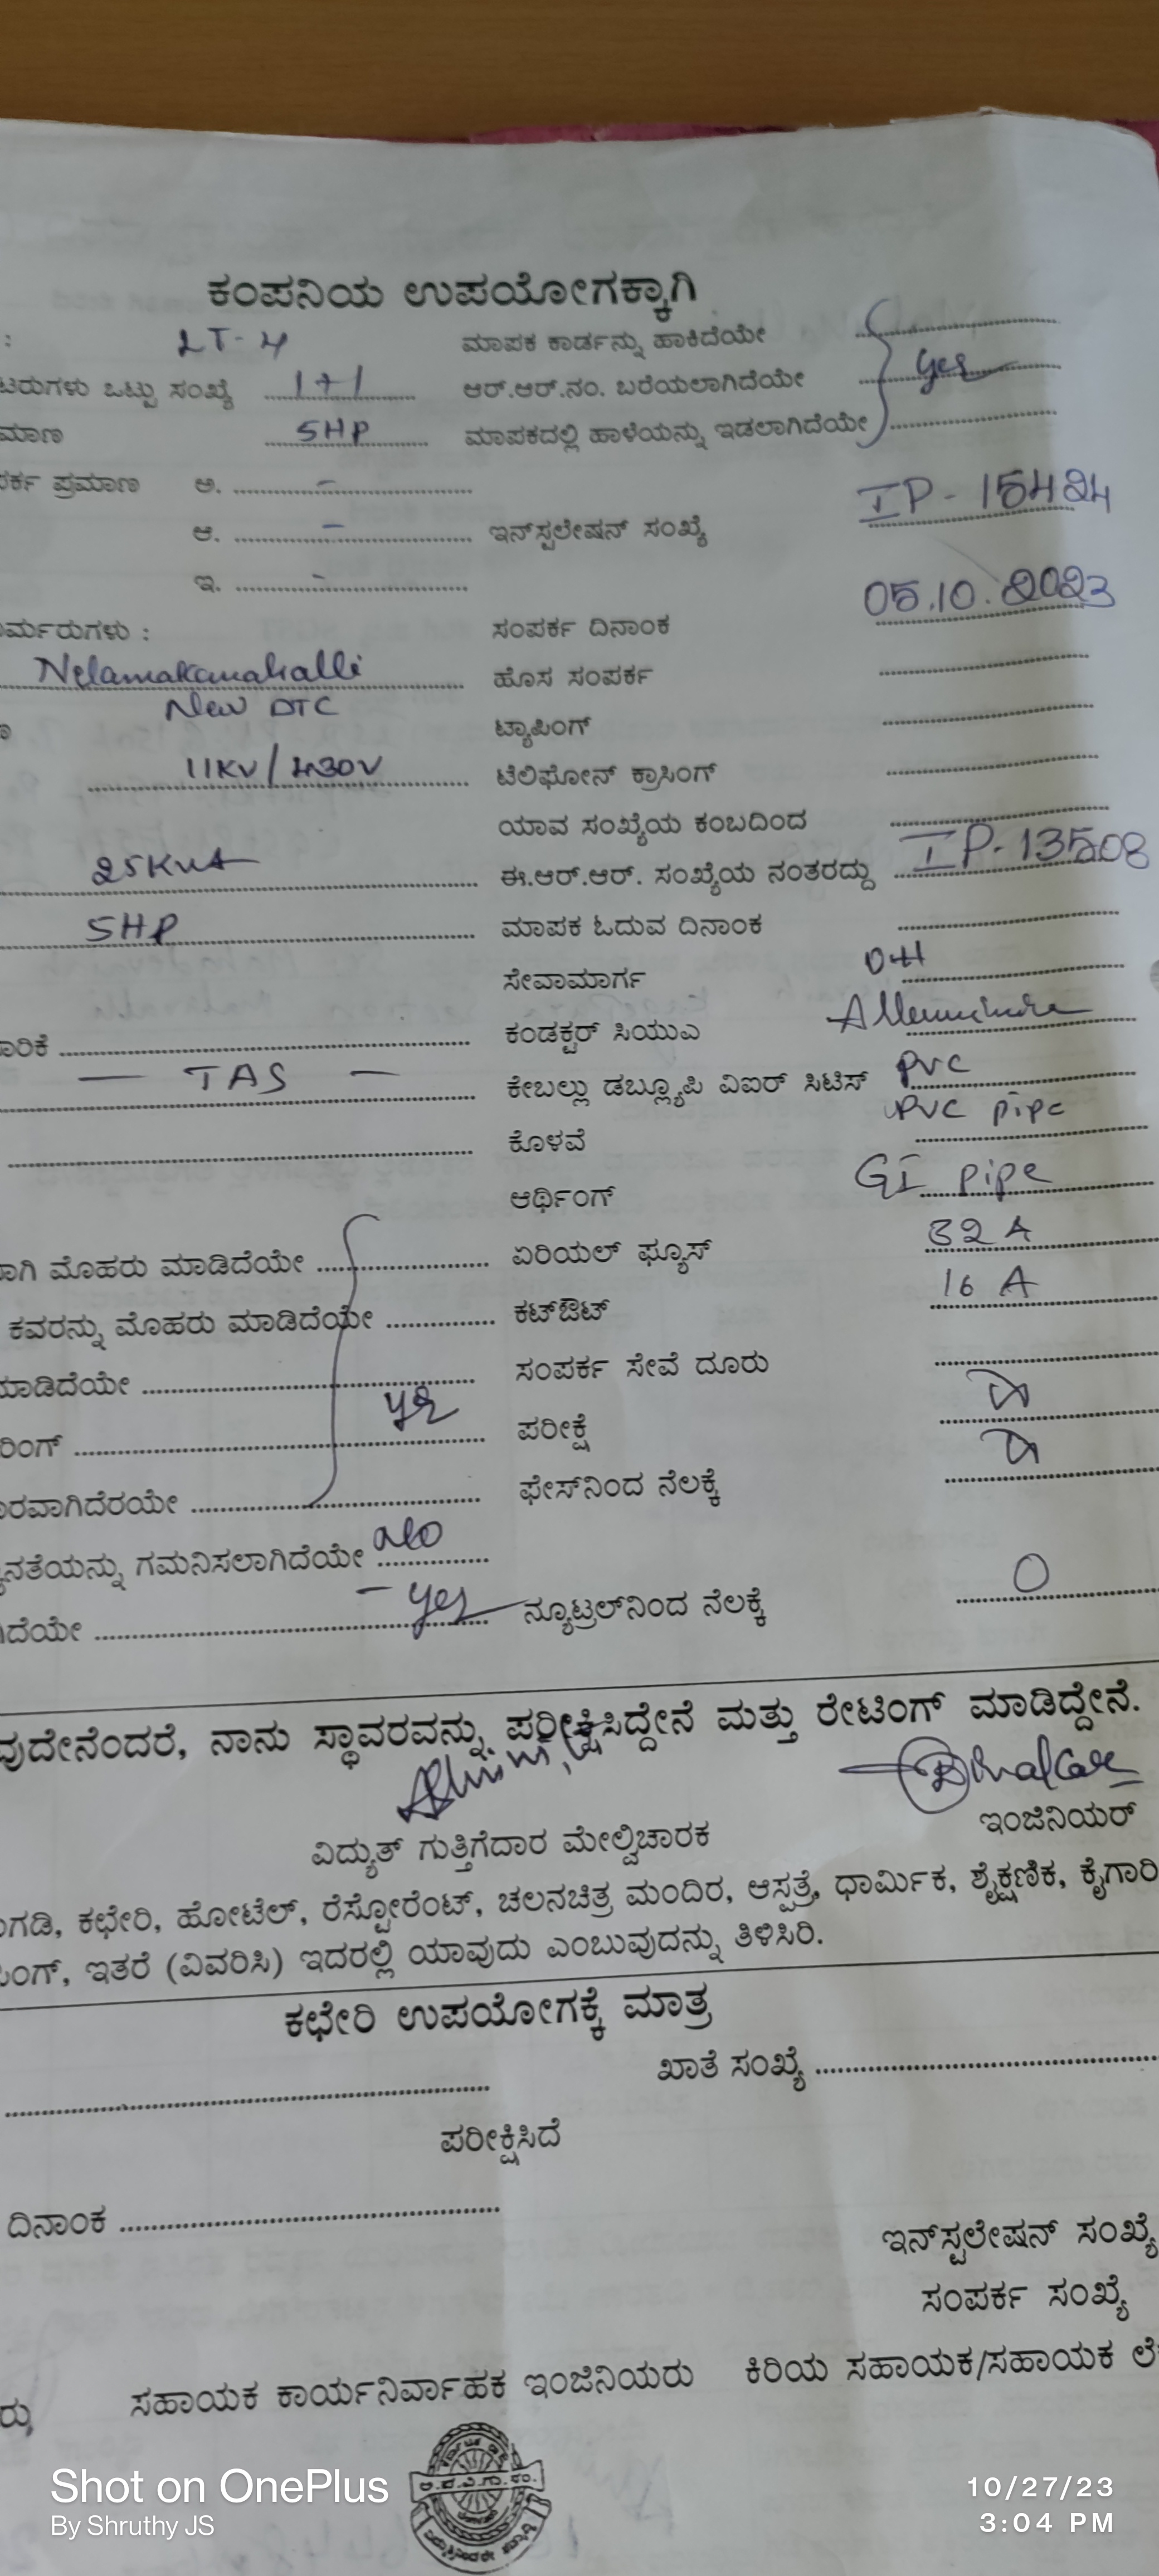 ಕಂಪನಿಯ ಉಪಯೋಗಕ್ಕಾಗಿ
: LT-4 ಮಾಪಕ ಕಾರ್ಡನ್ನು ಹಾಕಿದೆಯೇ
ಟರುಗಳು ಒಟ್ಟು ಸಂಖ್ಯೆ 1+1 ಆರ್.ಆರ್.ನಂ. ಬರೆಯಲಾಗಿದೆಯೇ yes
ಮಾಣ 5HP ಮಾಪಕದಲ್ಲಿ ಹಾಳೆಯನ್ನು ಇಡಲಾಗಿದೆಯೇ
ರ್ಕ ಪ್ರಮಾಣ ಅ. -
ಆ. - ಇನ್‌ಸ್ಟಲೇಷನ್ ಸಂಖ್ಯೆ IP-15424
ಇ. -
ರ್ಮರುಗಳು : ಸಂಪರ್ಕ ದಿನಾಂಕ 05.10.2023
Nelamakanahalli ಹೊಸ ಸಂಪರ್ಕ
New DTC ಟ್ಯಾಪಿಂಗ್
11KV/430V ಟೆಲಿಫೋನ್ ಕ್ರಾಸಿಂಗ್
ಯಾವ ಸಂಖ್ಯೆಯ ಕಂಬದಿಂದ
25KVA ಈ.ಆರ್.ಆರ್. ಸಂಖ್ಯೆಯ ನಂತರದ್ದು IP-13508
5HP ಮಾಪಕ ಓದುವ ದಿನಾಂಕ
ಸೇವಾಮಾರ್ಗ OH
ಾರಿಕೆ ಕಂಡಕ್ಟರ್ ಸಿಯುಎ
- TAS - ಕೇಬಲ್ಲು ಡಬ್ಲ್ಯೂಪಿ ವಿಐರ್ ಸಿಟಿಸ್ PVC
ಕೊಳವೆ PVC pipe
ಆರ್ಥಿಂಗ್ GI pipe
ಾಗಿ ಮೊಹರು ಮಾಡಿದೆಯೇ ಏರಿಯಲ್ ಫ್ಯೂಸ್ 32 A
ಕವರನ್ನು ಮೊಹರು ಮಾಡಿದೆಯೇ ಕಟ್‌ಔಟ್ 16 A
ಮಾಡಿದೆಯೇ yes ಸಂಪರ್ಕ ಸೇವೆ ದೂರು
ರಿಂಗ್ ಪರೀಕ್ಷೆ
ಾರವಾಗಿದೆರಯೇ ಫೇಸ್‌ನಿಂದ ನೆಲಕ್ಕೆ
ನತೆಯನ್ನು ಗಮನಿಸಲಾಗಿದೆಯೇ No
ಿದೆಯೇ - yes ನ್ಯೂಟ್ರಲ್‌ನಿಂದ ನೆಲಕ್ಕೆ 0
ವುದೇನೆಂದರೆ, ನಾನು ಸ್ಥಾವರವನ್ನು ಪರೀಕ್ಷಿಸಿದ್ದೇನೆ ಮತ್ತು ರೇಟಿಂಗ್ ಮಾಡಿದ್ದೇನೆ.
ವಿದ್ಯುತ್ ಗುತ್ತಿಗೆದಾರ ಮೇಲ್ವಿಚಾರಕ ಇಂಜಿನಿಯರ್
ಗಡಿ, ಕಛೇರಿ, ಹೋಟೆಲ್, ರೆಸ್ಟೋರೆಂಟ್, ಚಲನಚಿತ್ರ ಮಂದಿರ, ಆಸ್ಪತ್ರೆ, ಧಾರ್ಮಿಕ, ಶೈಕ್ಷಣಿಕ, ಕೈಗಾರಿ
ಂಗ್, ಇತರೆ (ವಿವರಿಸಿ) ಇದರಲ್ಲಿ ಯಾವುದು ಎಂಬುವುದನ್ನು ತಿಳಿಸಿರಿ.
ಕಛೇರಿ ಉಪಯೋಗಕ್ಕೆ ಮಾತ್ರ
ಖಾತೆ ಸಂಖ್ಯೆ
ಪರೀಕ್ಷಿಸಿದೆ
ದಿನಾಂಕ
ಇನ್‌ಸ್ಟಲೇಷನ್ ಸಂಖ್ಯೆ
ಸಂಪರ್ಕ ಸಂಖ್ಯೆ
ರು ಸಹಾಯಕ ಕಾರ್ಯನಿರ್ವಾಹಕ ಇಂಜಿನಿಯರು ಕಿರಿಯ ಸಹಾಯಕ/ಸಹಾಯಕ ಲೆ
Shot on OnePlus
By Shruthy JS
10/27/23
3:04 PM